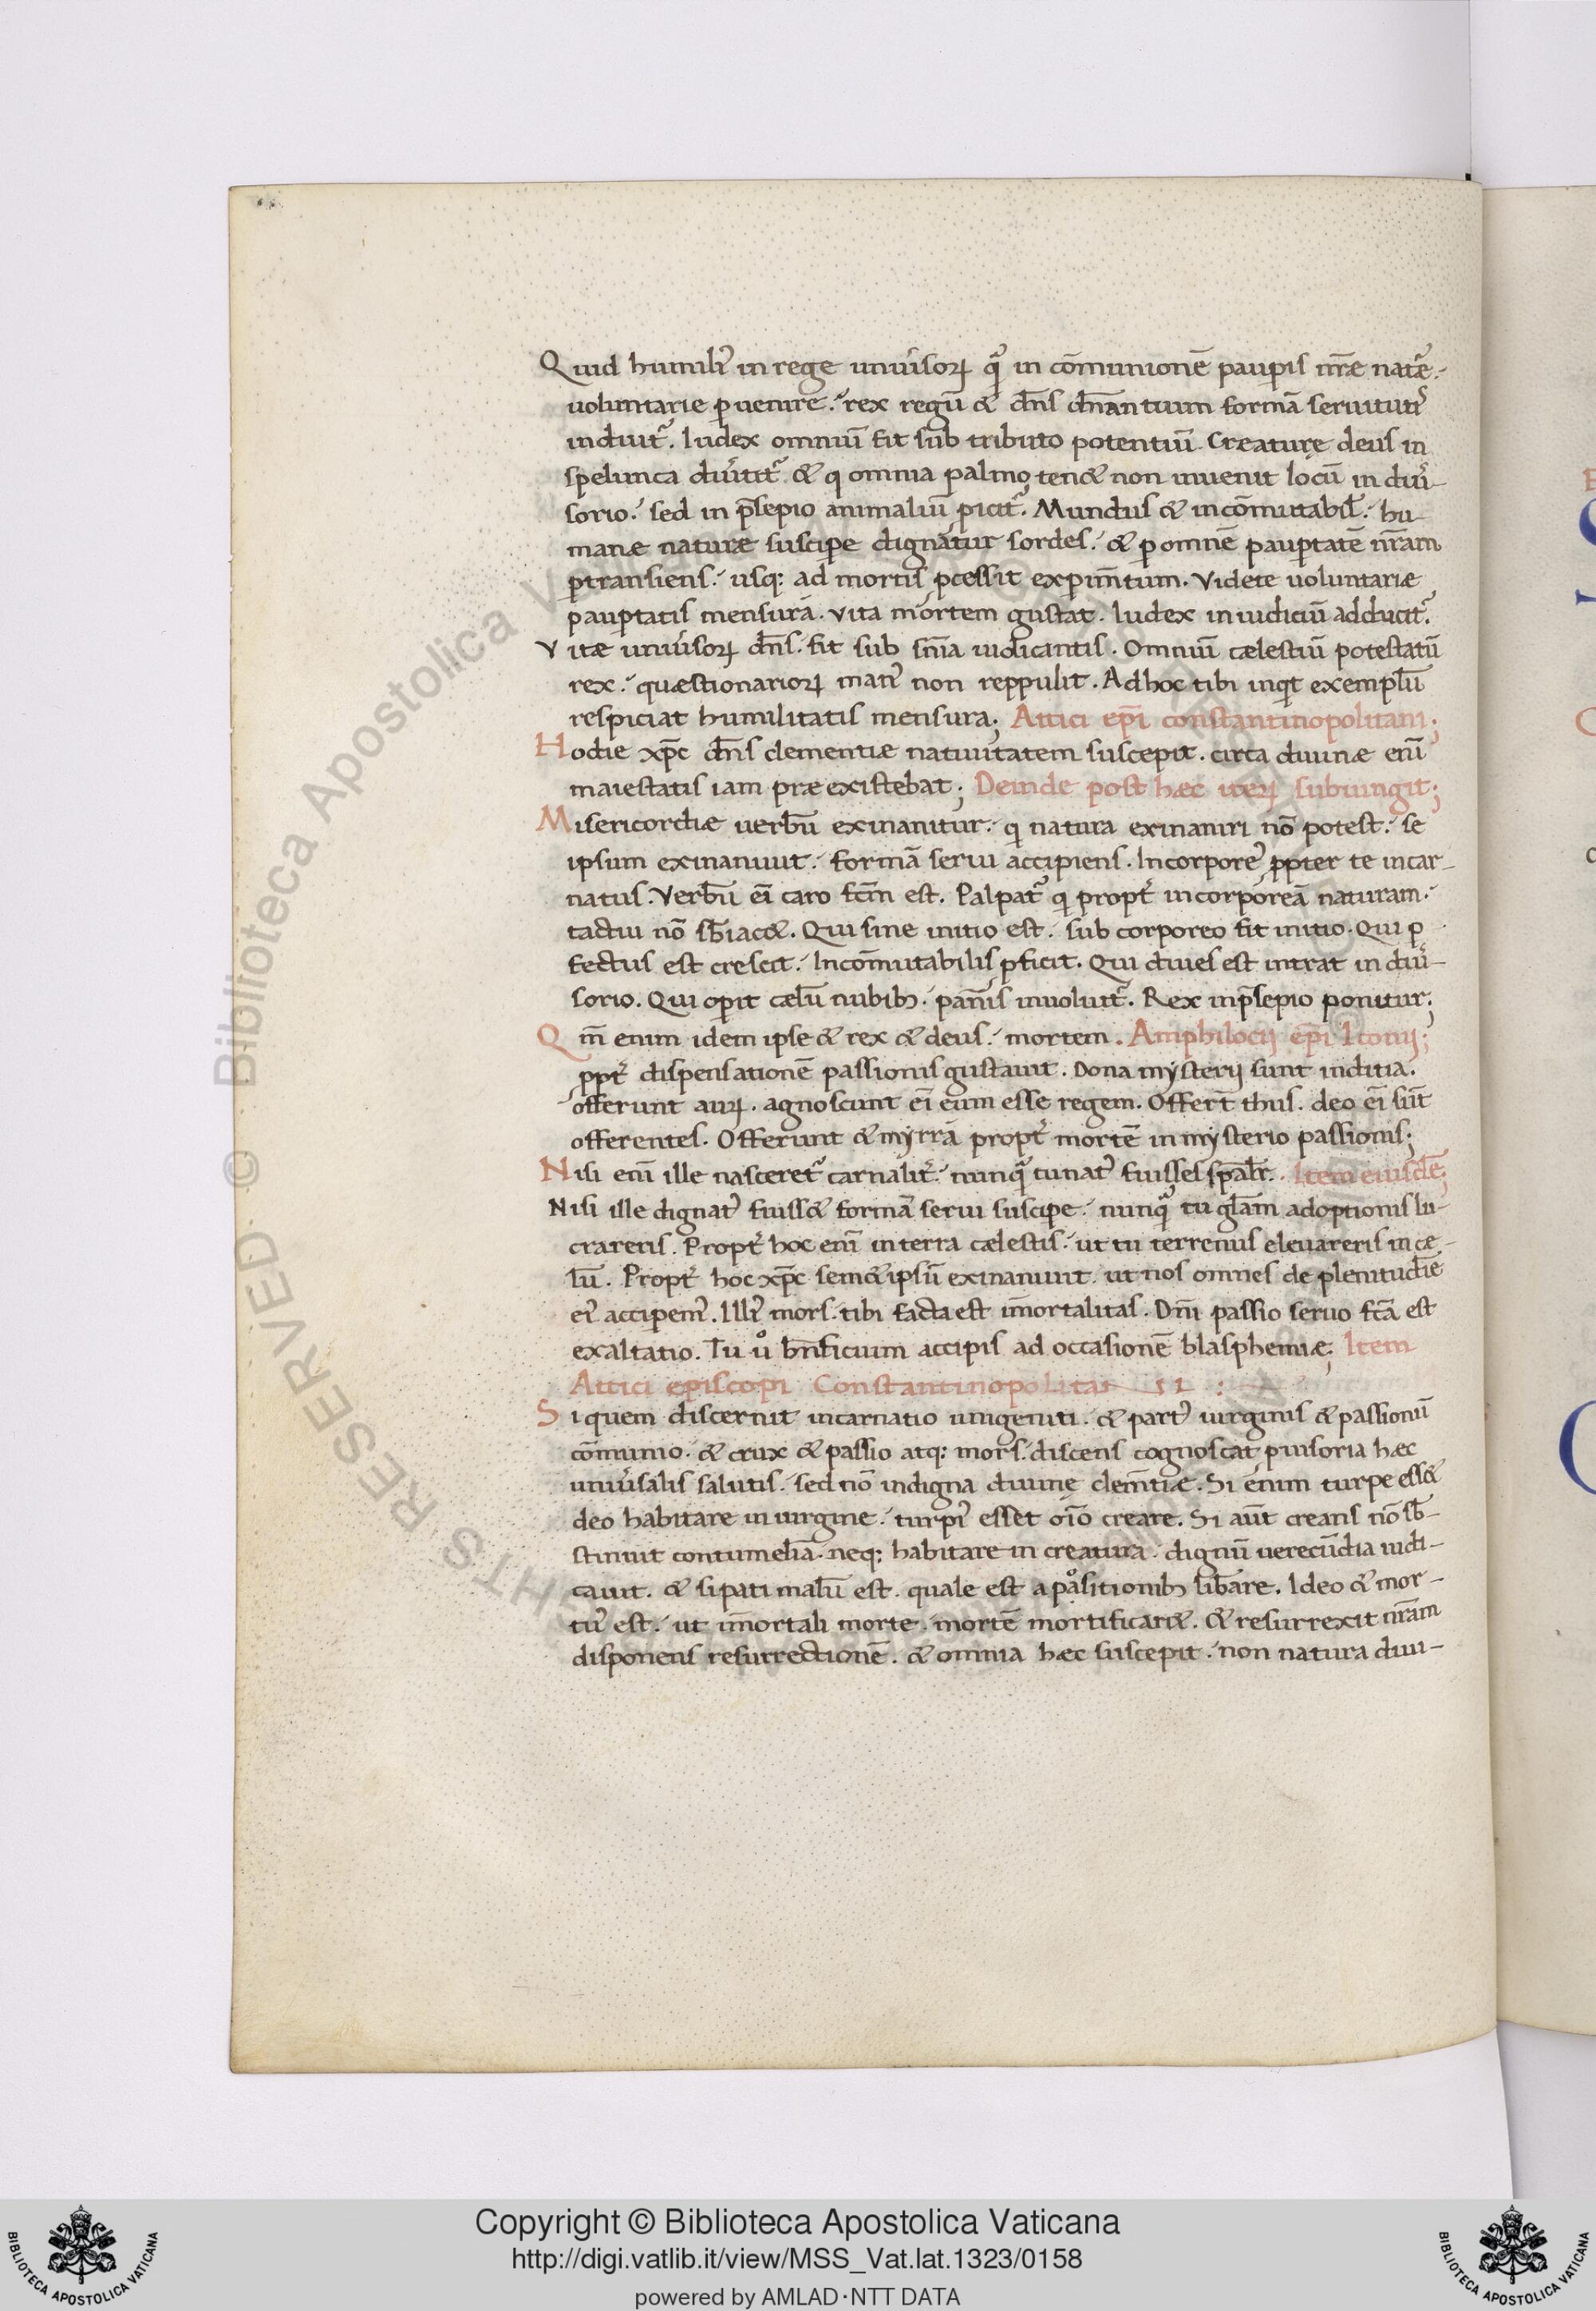 Quid humili᷒ in rege uniu͛soꝝ q̃ in cōmunionē paup̱is nr̄æ nat᷑e.
uoluntarie p̱uenire. rex regū & dn̄s dn̄antium formā seruituti᷒
induit᷑. Iudex omniū fit sub tributo potentiū. Creaturę deus in
spelunca diu͛tit᷑ & q omnia palmo ten& non inuenit locū in diu͛-
sorio. sed in p̄sepio animaliū ꝓicit᷑. Mundus & incōmutabil̄. hu-
manæ naturæ suscip̱e dignatur sordes. & p̱ omnē paup̱tatē nr̄am
p̱transiens. usq; ad mortis ꝓcessit exp̱im̄tum. Videte uoluntariæ
paup̱tatis mensurā. Vita mortem gustat. Iudex in iudiciū adducit᷑.
Vitæ uniu͛soꝝ dn̄s. fit sub sn̄ia iudicantis. Omniū cælestiū potestatū
rex. quæstionarioꝝ man᷒ non reppulit. Ad hoc tibi inqt exemplū
respiciat humilitatis mensura; Attici ep̄i constantinopolitani;
Hodie xp̄c dn̄s clementiæ natiuitatem suscepit. circa diuinæ enī
maiestatis iam præexistebat; Deinde post hæc iteꝝ subiungit;
Misericordiæ uerbū exinanitur. q natura exinaniri nō potest. se
ipsum exinaniuit. formā serui accipiens. Incorpore᷒ ꝓpter te incar-
natus. Verbū ei̅ caro fcm̄ est. Palpat᷑ q propt͛ incorporeā naturam.
tactui nō sb̄iac&. Qui sine initio est. sub corporeo fit initio. Qui p̱
fectus est crescit. Incōmutabilis ꝓficit. Qui diues est intrat in diu͛-
sorio. Qui op̱it cælū nubib; pan̄is inuoluit᷑. Rex in p̄sepio ponitur;
Qm̄ enim idem ipse & rex & deus. mortem. Amphilocij ep̄i Iconij;
ꝓpt͛ dispensationē passionis gustauit. Dona mysterij sunt inditia.
offerunt auꝝ. agnoscunt ei̅ eum esse regem. Offert̄ thus. deo ei̅ sūt
offerentes. Offerunt & myrrā propt͛ mortē in mysterio passionis;
Nisi enī ille nasceret᷑ carnalit͛. nunq̃ tu nat᷒ fuisses sp̄alr̄. Item eiusdē;
Nisi ille dignat᷒ fuiss& formā serui suscip̱e. nunq̃ tu gl̄am adoptionis lu-
crareris. Propt͛ hoc enī in terra cælestis. ut tu terrenus eleuareris in cæ-
lū. Propt͛ hoc xp̄c sem& ipsū exinaniuit. ut nos omnes de plenitudīe
ei᷒ accipem᷒. Illi᷒ mors. tibi facta est īmortalitas. Dn̄i passio seruo fcā est
exaltatio. Tu uͦ bn̄ficium accipis ad occasionē blasphemiæ; Item
Attici episcopi Constantinopolitani :
Si quem discernit incarnatio unigeniti. & part᷒ uirginis & passionū
cōmunio. & crux & passio atq; mors. discens cognoscat ꝓuisoria hæc
uniu͛salis salutis. sed nō indigna diuinę clem̄tiæ. Si enim turpe ess&
deo habitare in uirgine. turpi᷒ esset oīo creare. Si aūt creans nō sb̄-
stinuit contumeliā. neq; habitare in creatura. dignū uerecūdia iudi-
cauit. & si pati malū est. quale est a paͦsitionib; lib̄are. Ideo & mor-
tu᷒ est. ut īmortali morte. mortē mortificar&. & resurrexit nr̄am
disponens resurrectionē. & omnia hæc suscepit. non natura diui-
Copyright © Biblioteca Apostolica Vaticana
http://digi.vatlib.it/view/MSS_Vat.lat.1323/0158
powered by AMLAD·NTT DATA